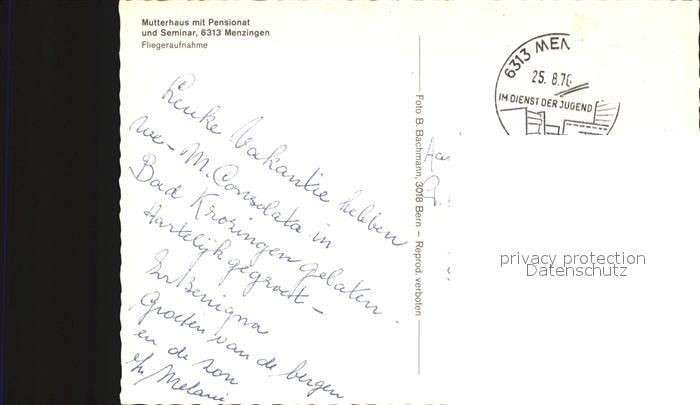 Mutterhaus mit Pensionat
und Seminar, 6313 Menzingen
Fliegeraufnahme
Leuke Vakantie hebben
we - M. Consolata in
Bad Krozingen gelaten.
Hartelijk gegroet -
Zr Benigna
Groeten van de bergen
en de zon
Zr Melanie
Foto B. Bachmann, 3018 Bern – Reprod. verboten
6313 MEN
25.8.76
IM DIENST DER JUGEND
privacy protection
Datenschutz